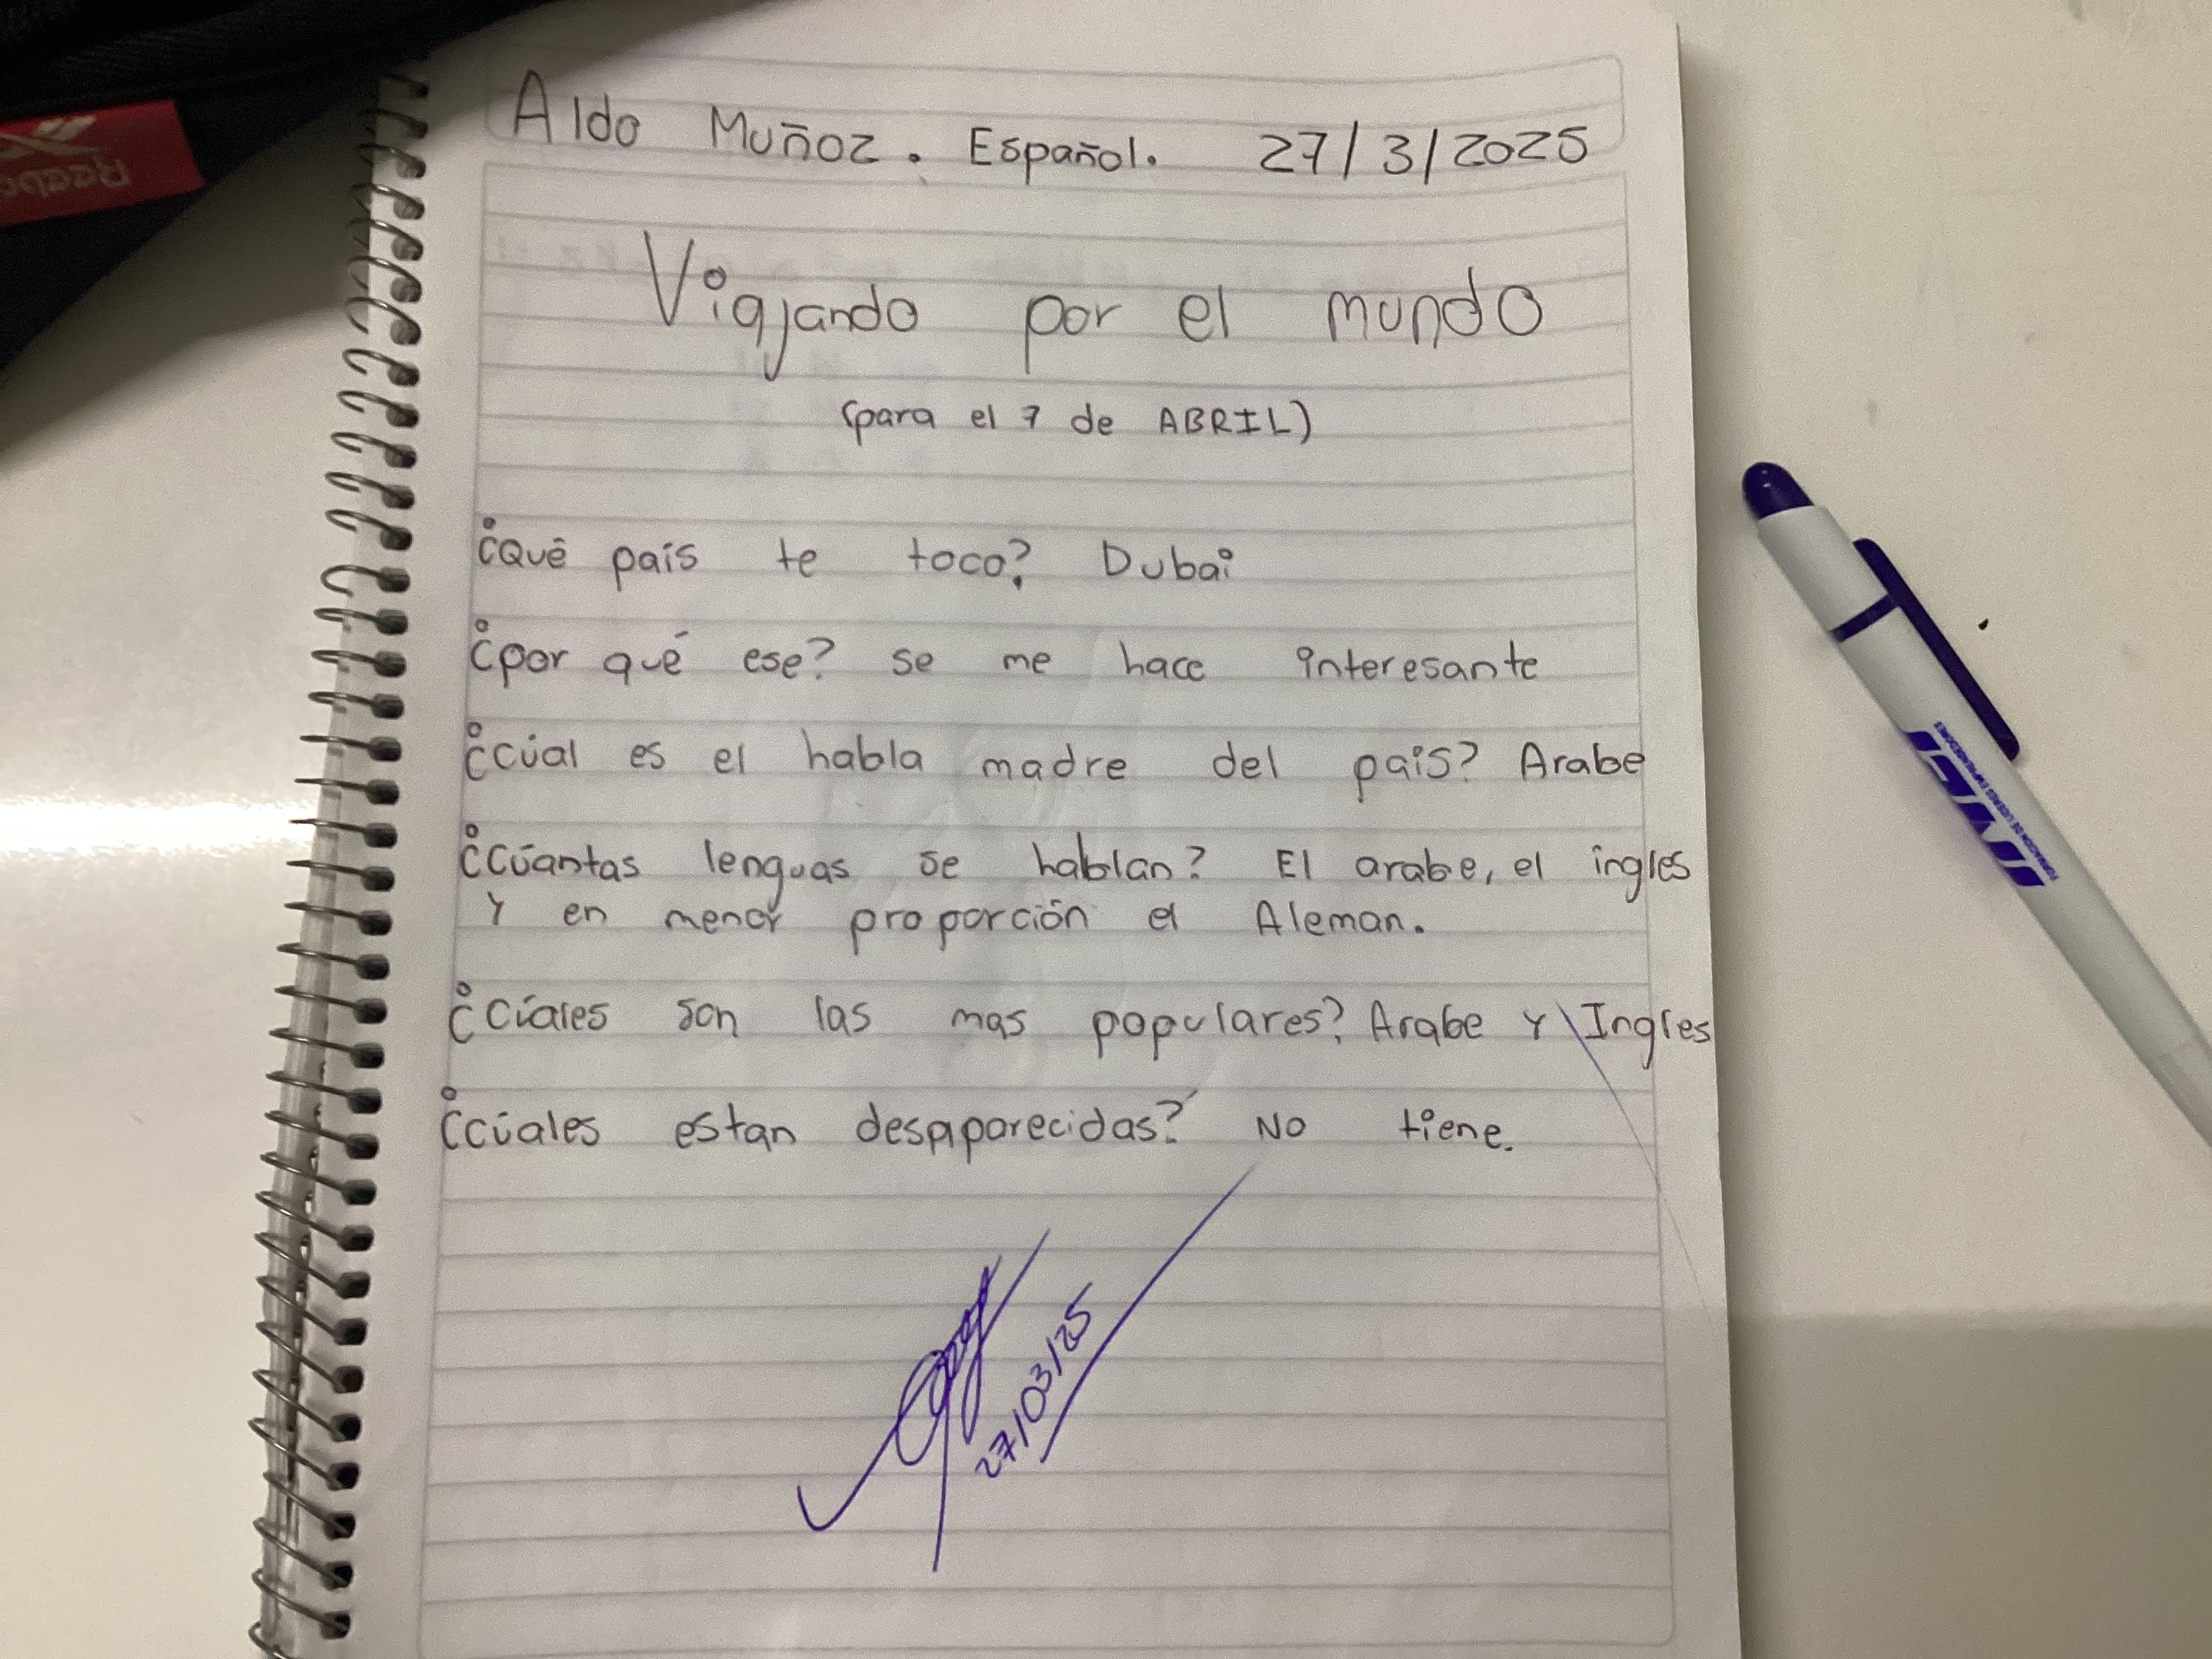 Aldo Muñoz. Español. 27/3/2025
Viajando por el mundo
(para el 7 de ABRIL)
¿Qué país te toco? Dubai
¿por qué ese? se me hace interesante
¿cúal es el habla madre del país? Arabe
¿Cúantas lenguas se hablan? El arabe, el ingles
Y en menor proporción el Aleman.
¿Cúales son las mas populares? Arabe Y Ingles
¿cúales estan desaparecidas? No tiene.
27/03/25
Reebok